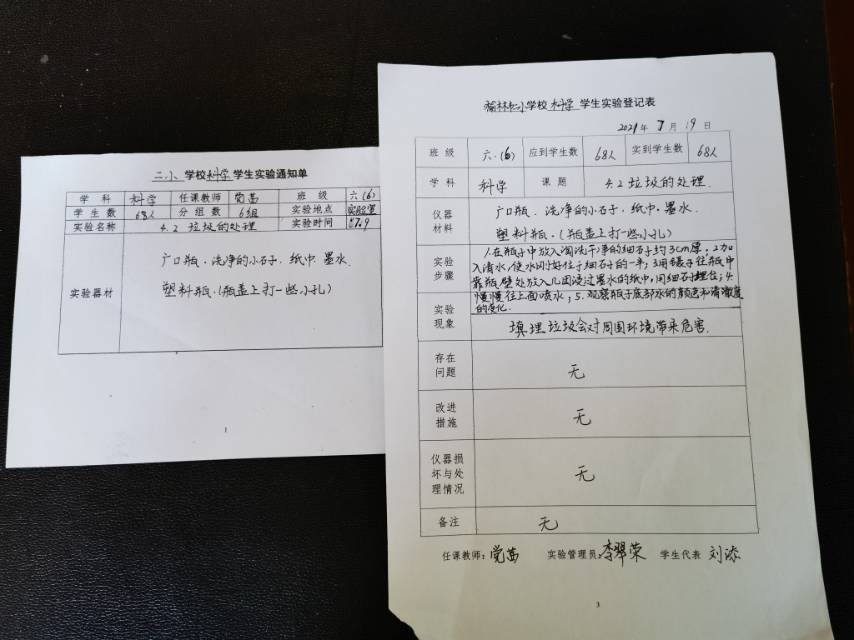 二小 学校科学学生实验通知单
学 科 科学 任课教师 党茜 班 级 六(6)
学 生 数 68人 分 组 数 6组 实验地点 实验室
实验名称 4.2 垃圾的处理 实验时间
实验器材
广口瓶、洗净的小石子、纸巾、墨水、
塑料瓶、(瓶盖上打一些小孔)
1
小学校科学学生实验登记表
2021年 月19日
班 级 六.(6) 应到学生数 68人 实到学生数 68人
学 科 科学 课 题 4.2 垃圾的处理.
仪器材料
广口瓶、洗净的小石子、纸巾、墨水、
塑料瓶、(瓶盖上打一些小孔)
实验步骤
1.在瓶子中放入淘洗干净的细石子约3cm厚,2.加
入清水,使水刚好位于细石子的一半;3.用镊子往瓶中
靠瓶壁处放入几团浸过墨水的纸巾,用细石子埋住;4.
慢慢往上面喷水;5.观察瓶子底部水的颜色和清澈度
的变化.
实验现象
填埋垃圾会对周围环境带来危害.
存在问题 无
改进措施 无
仪器损坏与处理情况 无
备注 无
任课教师:党茜 实验管理员:李翠荣 学生代表 刘添
3